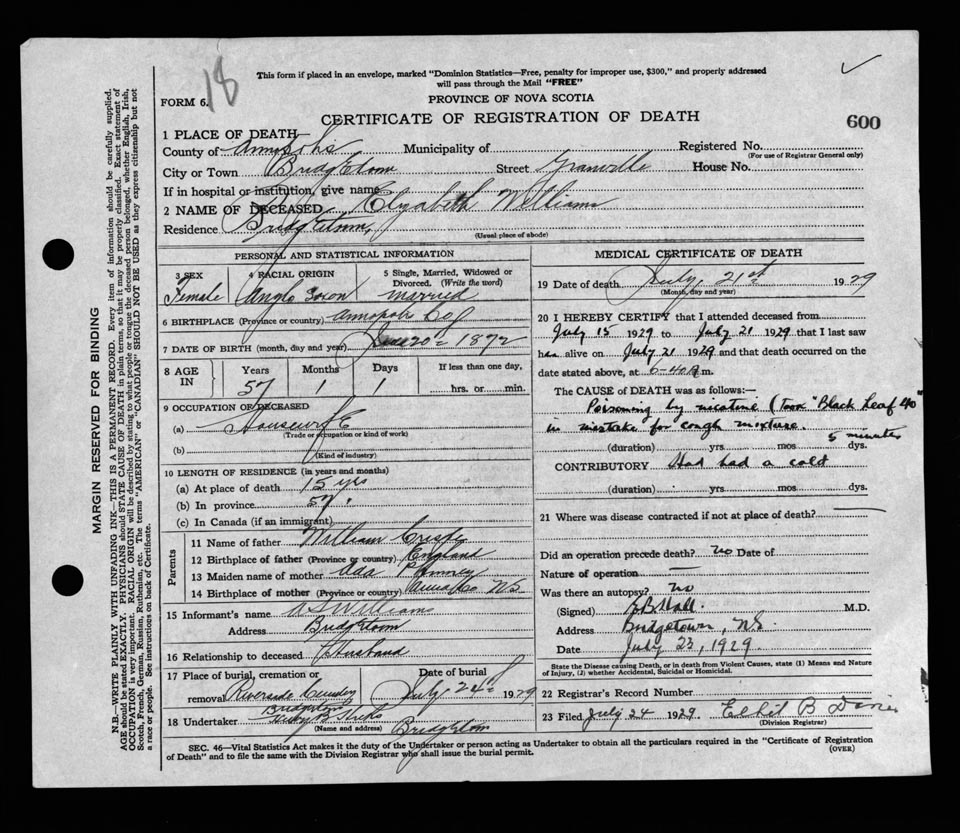 18
This form if placed in an envelope, marked "Dominion Statistics—Free, penalty for improper use, $300," and properly addressed
will pass through the Mail "FREE"
FORM 6.
PROVINCE OF NOVA SCOTIA
CERTIFICATE OF REGISTRATION OF DEATH
600
1 PLACE OF DEATH
County of Annapolis Municipality of Registered No.
(For use of Registrar General only)
City or Town Bridgetown Street Granville House No.
If in hospital or institution, give name
2 NAME OF DECEASED Elizabeth Williams
Residence Bridgetown,
(Usual place of abode)
PERSONAL AND STATISTICAL INFORMATION
3 SEX
Female
4 RACIAL ORIGIN
Anglo Saxon
5 Single, Married, Widowed or Divorced. (Write the word)
married
6 BIRTHPLACE (Province or country) Annapolis Co
7 DATE OF BIRTH (month, day and year) June 20th 1872
8 AGE IN
Years Months Days If less than one day,
57 1 1 hrs. or min.
9 OCCUPATION OF DECEASED
(a) Housewife
(Trade or occupation or kind of work)
(b)
(Kind of industry)
10 LENGTH OF RESIDENCE (in years and months)
(a) At place of death 15 yrs
(b) In province 57 "
(c) In Canada (if an immigrant)
Parents
11 Name of father William Crisp
12 Birthplace of father (Province or country) England
13 Maiden name of mother Ada
14 Birthplace of mother (Province or country) Anna Co NS
15 Informant's name A S Williams
Address Bridgetown
16 Relationship to deceased Husband
17 Place of burial, cremation or removal Riverside Cemetery
Bridgetown
Date of burial
July 24th 1929
18 Undertaker
(Name and address) Bridgetown
MEDICAL CERTIFICATE OF DEATH
19 Date of death July 21st 1929
(Month, day and year)
20 I HEREBY CERTIFY that I attended deceased from
July 15 1929 to July 21 1929 that I last saw
her alive on July 21 1929 and that death occurred on the
date stated above, at 6-40 P.m.
The CAUSE of DEATH was as follows:—
Poisoning by nicotine (took "Black Leaf 40"
in mistake for cough mixture.
5 minutes
(duration) yrs. mos. dys.
CONTRIBUTORY Had had a cold
(duration) yrs. mos. dys.
21 Where was disease contracted if not at place of death? —
Did an operation precede death? no Date of
Nature of operation —
Was there an autopsy? no
(Signed) Hall. M.D.
Address Bridgetown, N.S.
Date July 23, 1929.
State the Disease causing Death, or in death from Violent Causes, state (1) Means and Nature
of Injury, (2) whether Accidental, Suicidal or Homicidal.
22 Registrar's Record Number
23 Filed July 24 1929. B
(Division Registrar)
SEC. 46—Vital Statistics Act makes it the duty of the Undertaker or person acting as Undertaker to obtain all the particulars required in the "Certificate of Registration
of Death" and to file the same with the Division Registrar who shall issue the burial permit.
(OVER)
MARGIN RESERVED FOR BINDING
N.B.—WRITE PLAINLY WITH UNFADING INK—THIS IS A PERMANENT RECORD. Every item of information should be carefully supplied.
AGE should be stated EXACTLY. PHYSICIANS should STATE CAUSE OF DEATH in plain terms, so that it may be properly classified. Exact statement of
OCCUPATION is very important. RACIAL ORIGIN will be described by stating to what people or tongue the deceased person belonged, whether English, Irish,
Scotch, French, German, Russian, Ruthenian, etc. The terms "AMERICAN" or "CANADIAN" SHOULD NOT BE USED as they express citizenship but not
a race or people. See instructions on back of Certificate.